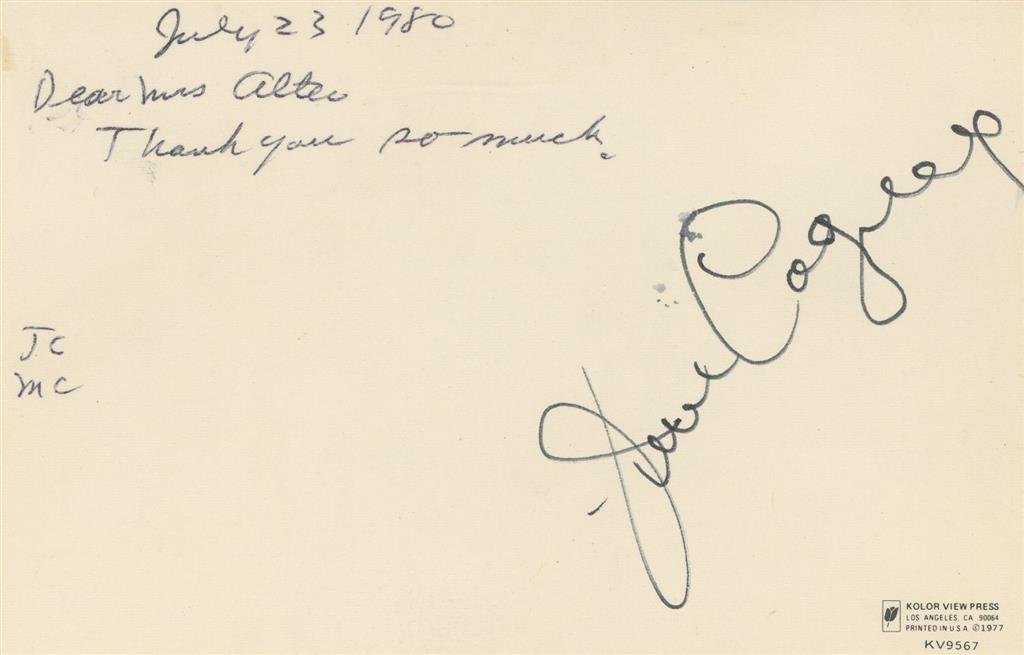 July 23 1980
Dear Mrs Alteo
Thank you so much.
James Cagney
JC
MC
KOLOR VIEW PRESS
LOS ANGELES, CA 90064
PRINTED IN U.S.A. ©1977
KV9567